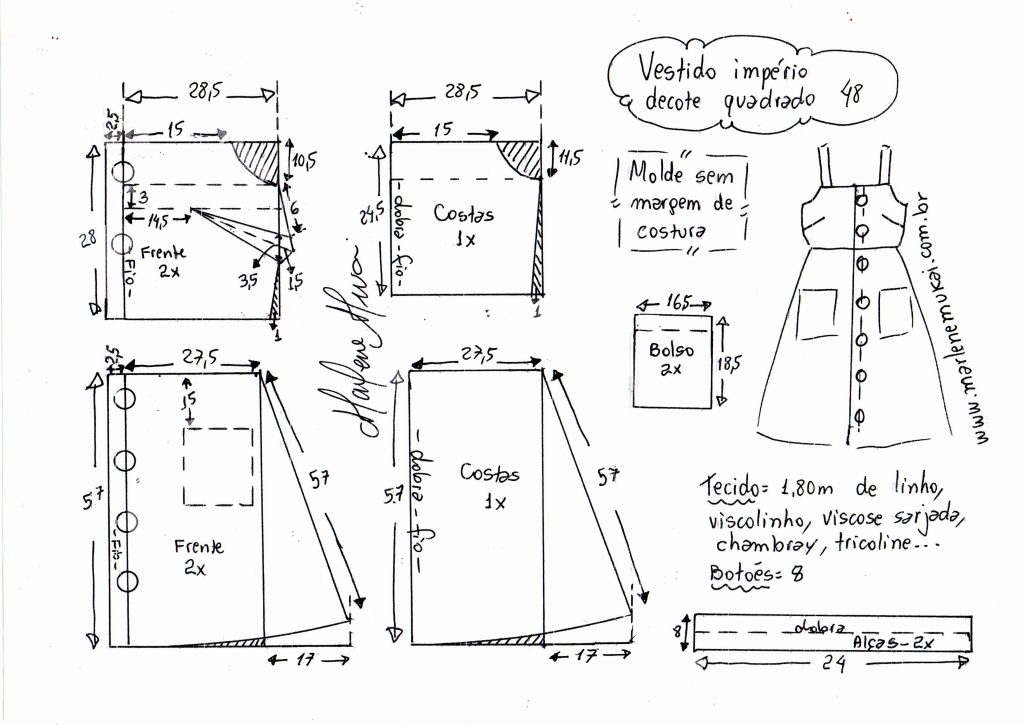 Vestido império
decote quadrado 48
28,5
2,5
15
10,5
3
14,5
6
28
Frente
2x
Fio
3,5
1,5
1
28,5
15
11,5
24,5
dobra - fio
Costas
1x
1
Molde sem
margem de
costura
www.marlenemukai.com.br
Marlene Mukai
16,5
Bolso
2x
18,5
2,5
27,5
15
57
57
Frente
2x
Fio
17
27,5
57
dobra - fio
Costas
1x
57
17
Tecido= 1,80m de linho,
viscolinho, viscose sarjada,
chambray, tricoline...
Botões= 8
8
dobra
Alças-2x
24